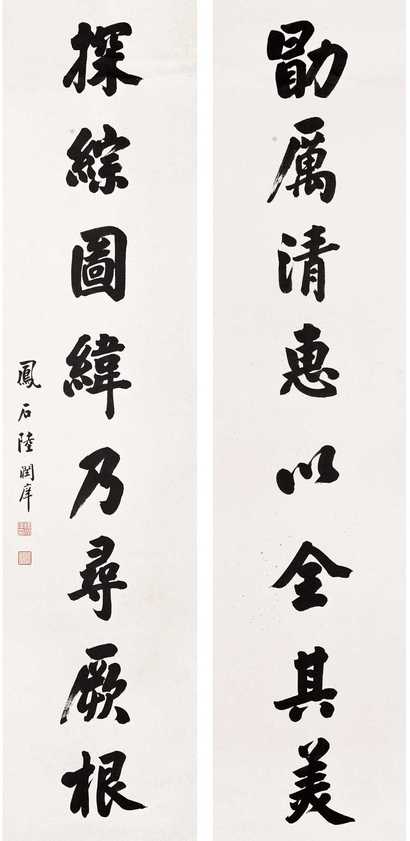 勖厲清惠以全其美
探綜圖緯乃尋厥根
鳳石陸潤庠